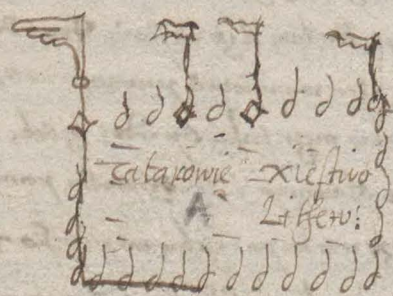 Tatarowie Xieſtwo
A Litew: